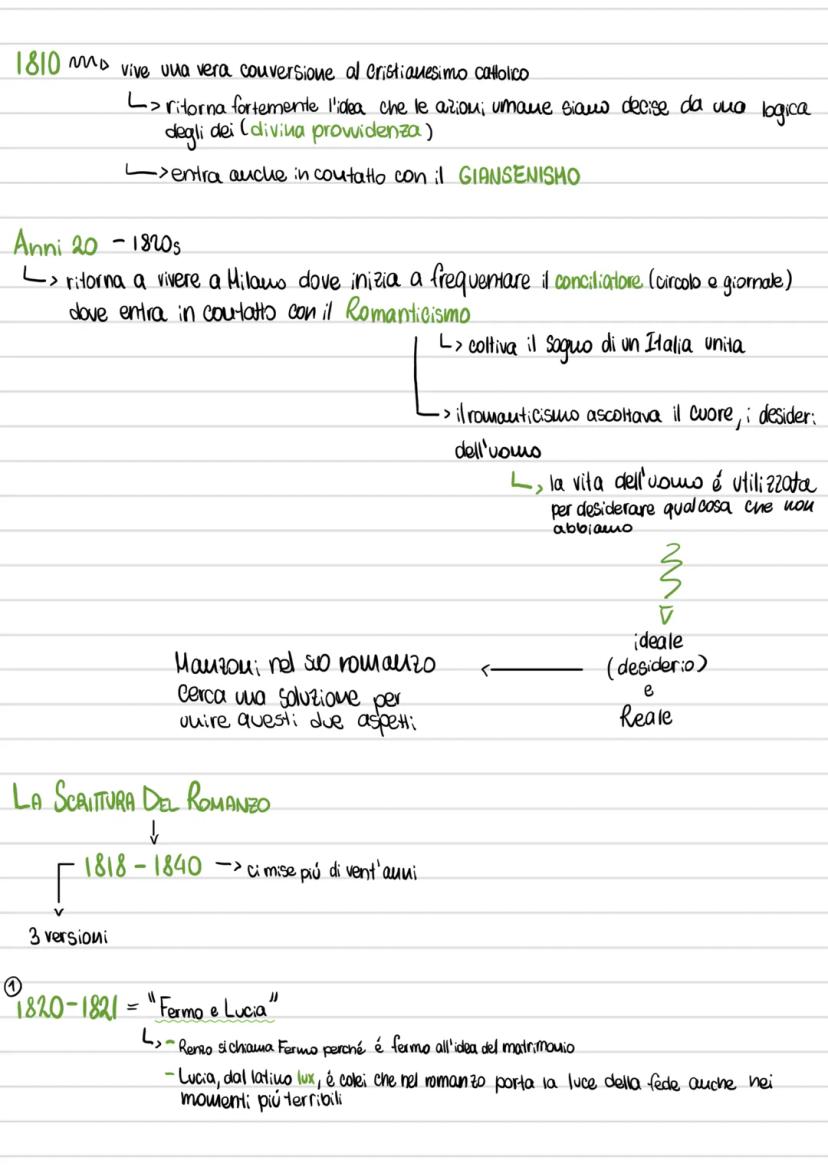 1810 vive una vera conversione al cristianesimo cattolico
↳ ritorna fortemente l'idea che le azioni umane siano decise da una logica
degli dei (divina provvidenza)
↳ entra anche in contatto con il GIANSENISMO
Anni 20 - 1820s
↳ ritorna a vivere a Milano dove inizia a frequentare il conciliatore (circolo e giornale)
dove entra in contatto con il Romanticismo
↳ coltiva il sogno di un Italia unita
↳ il romanticismo ascoltava il cuore, i desideri
dell'uomo
↳ la vita dell'uomo é utilizzata
per desiderare qualcosa che non
abbiamo
ideale
(desiderio)
e
Reale
Manzoni nel suo romanzo
cerca una soluzione per
unire questi due aspetti
LA SCRITTURA DEL ROMANZO
↓
1818 - 1840 → ci mise piú di vent'anni
3 versioni
① 1820-1821 = "Fermo e Lucia"
↳ - Renso si chiama Fermo perché é fermo all'idea del matrimonio
- Lucia, dal latino lux, é colei che nel romanzo porta la luce della fede anche nei
momenti piú terribili